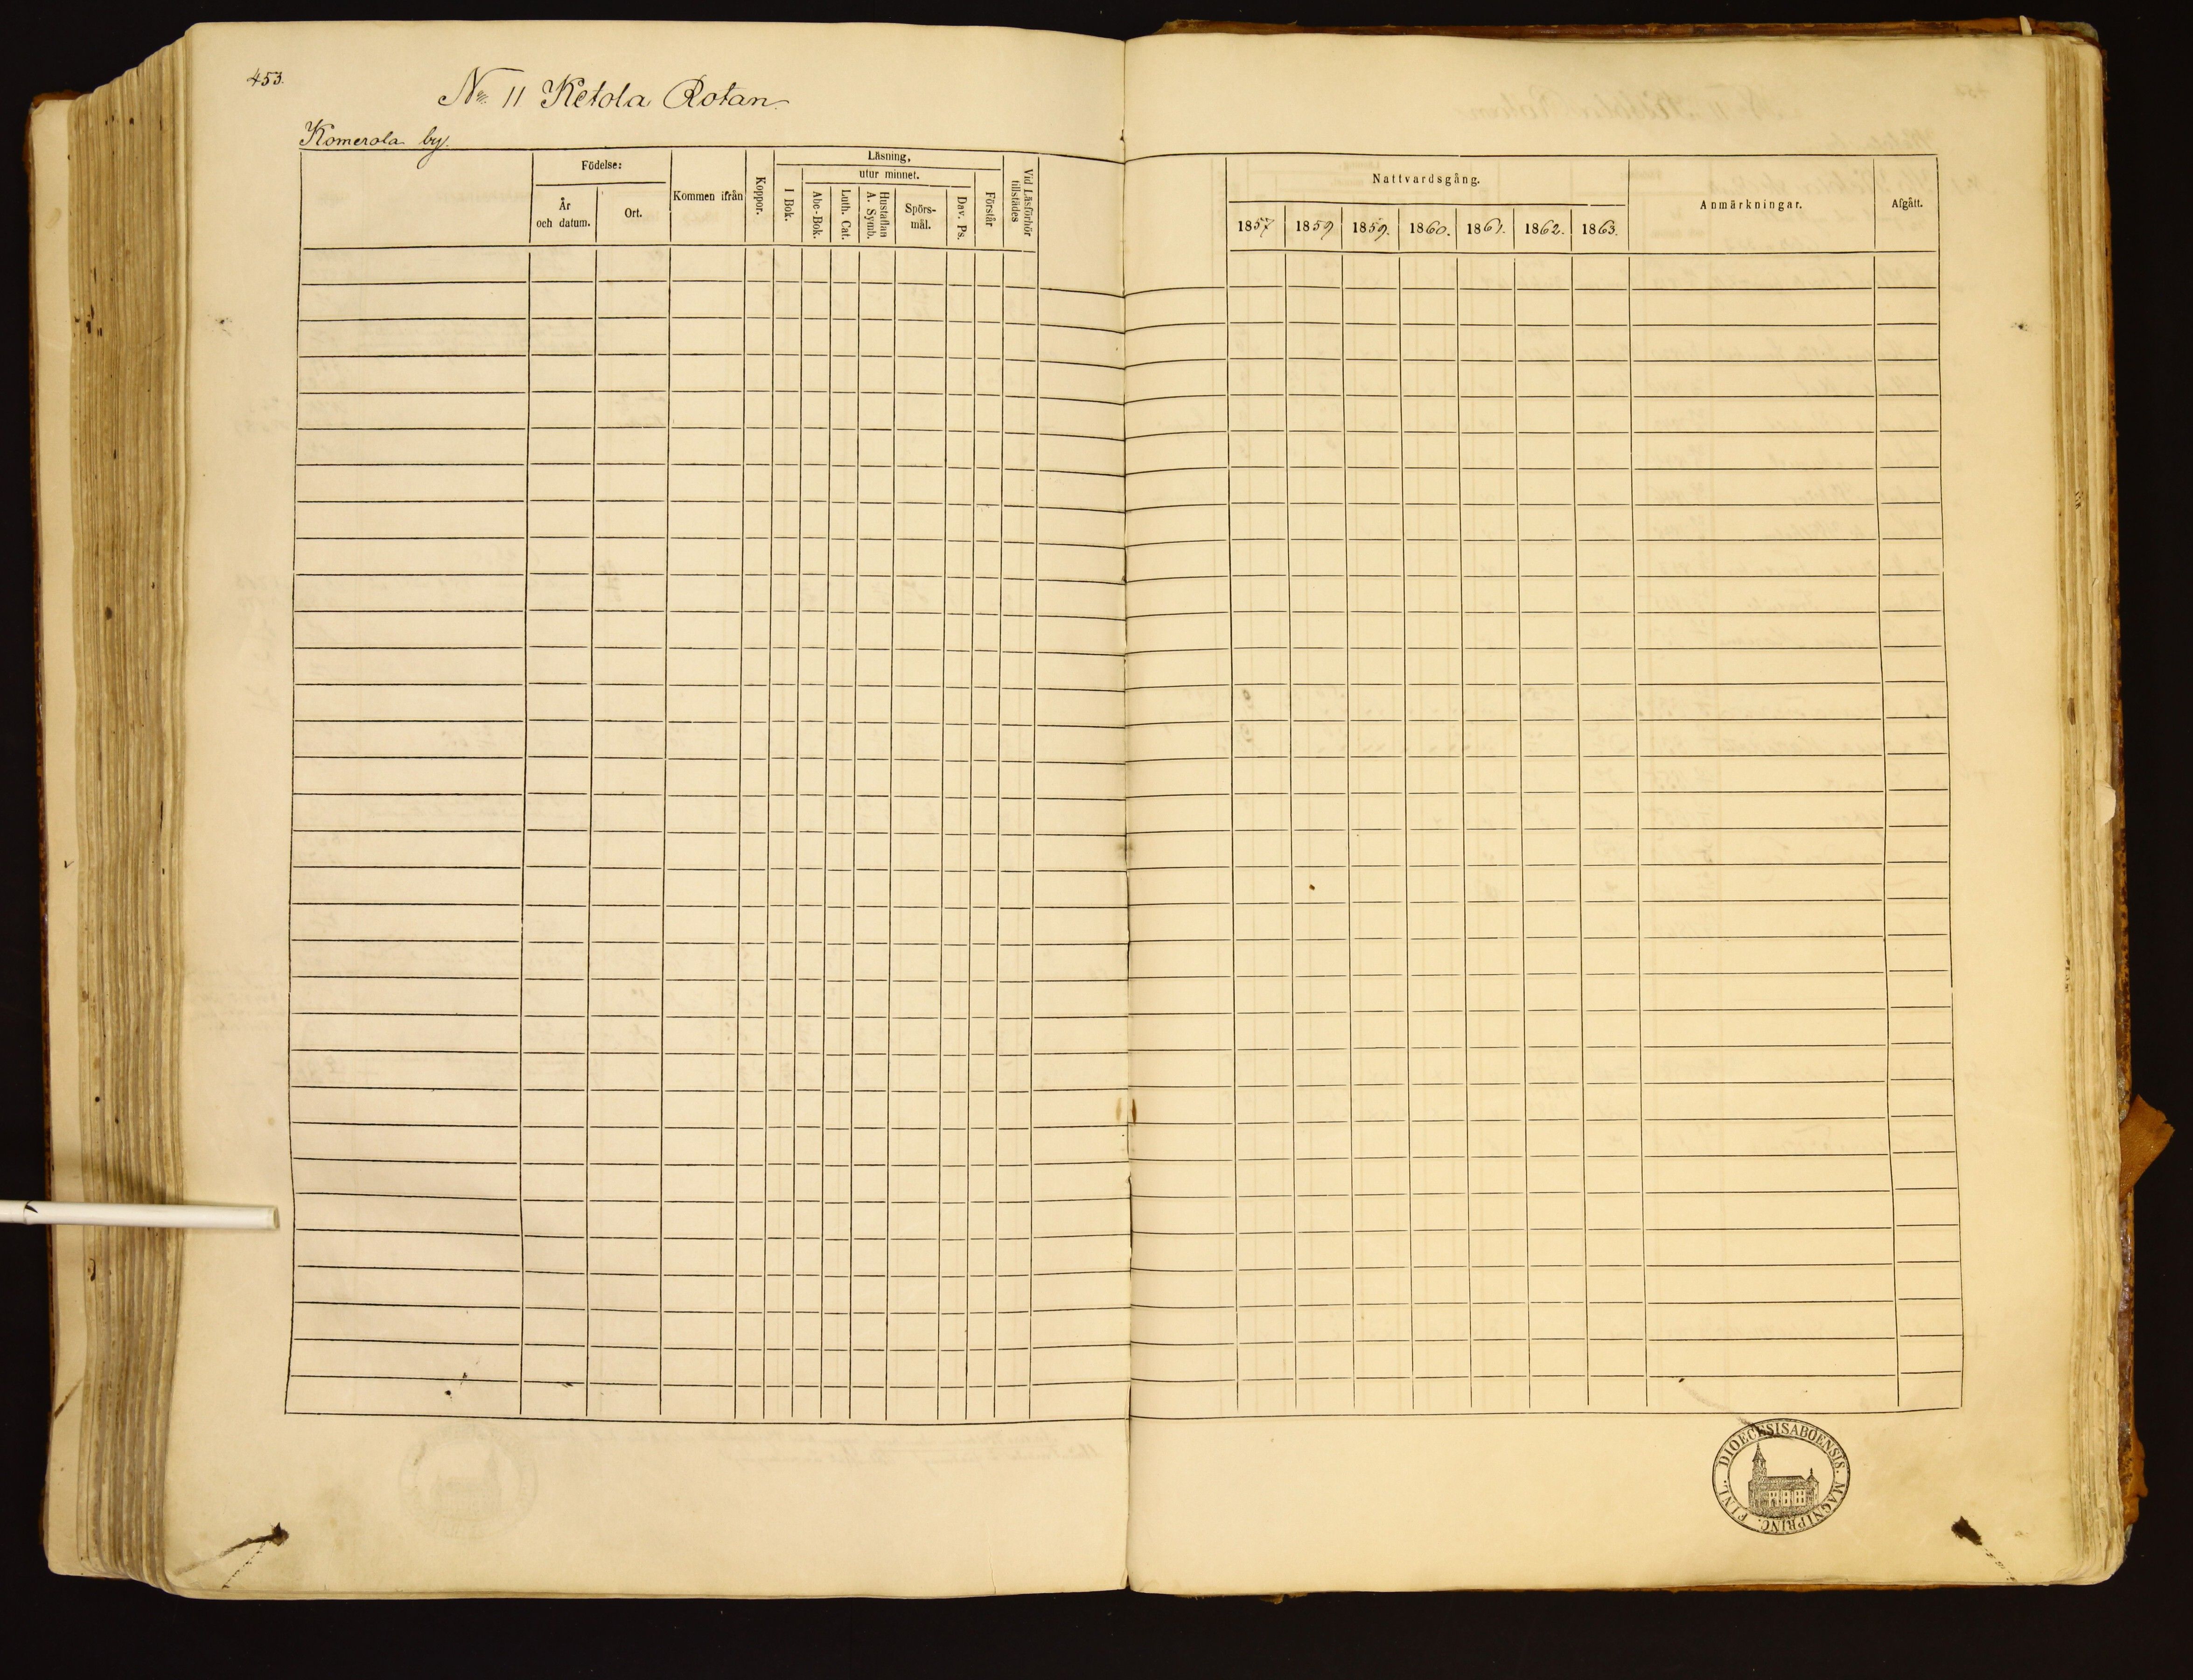 453.
No 11 Ketola Rotan
Komerola by.
Födelse:
År
och datum.
Ort.
Kommen ifrån
Koppor.
Läsning,
utur minnet.
I Bok.
Abc-Bok.
Luth. Cat.
Hustaflan
A. Symb.
Spörs-
mål.
Dav. Ps.
Förstår
Vid Läsförhör
tillstädes
Nattvardsgång.
1857 1859 1859. 1860. 1861. 1862. 1863.
Anmärkningar.
Afgått.
DIOECESIS ABOENSIS. MAGNI PRINC. FINL.